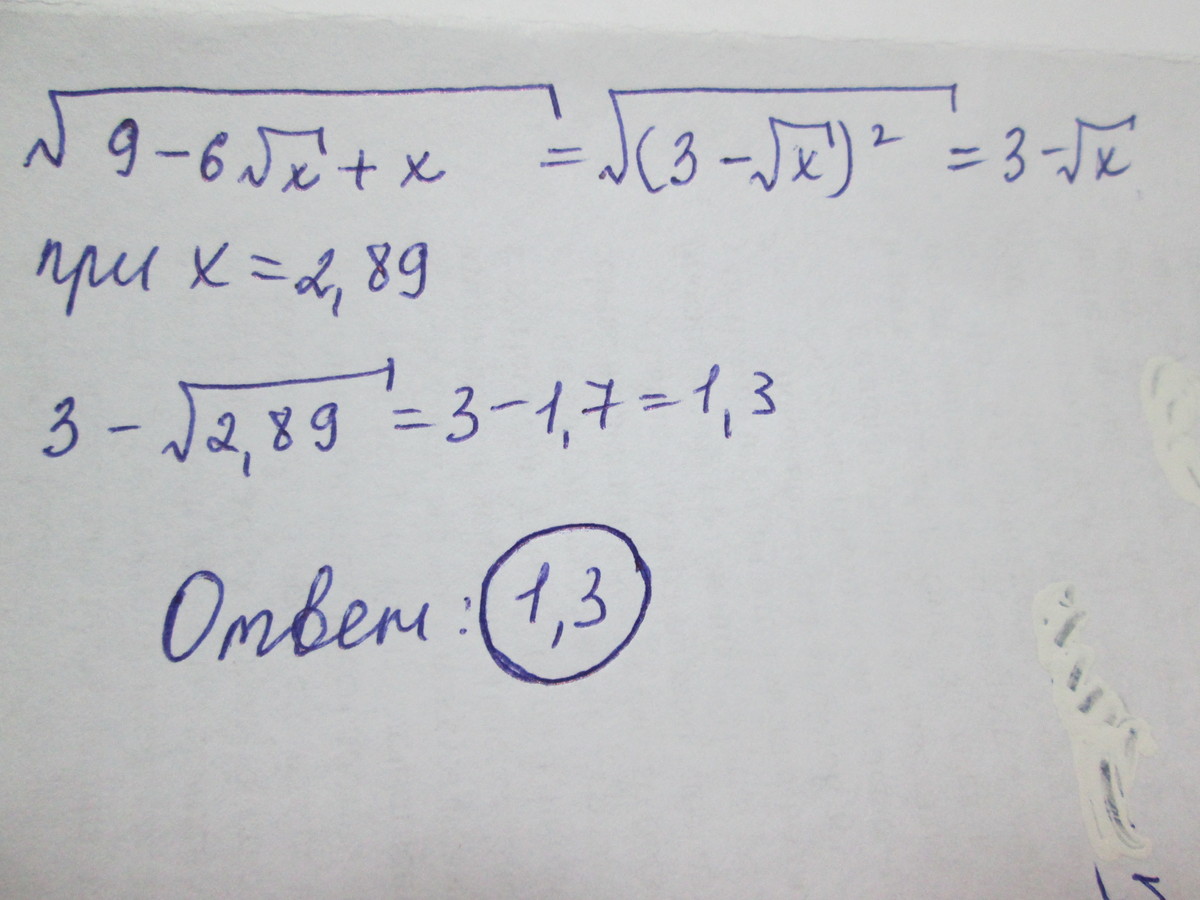 √(9-6√x+x) = √((3-√x)²) = 3-√x
при x=2,89
3-√2,89 = 3-1,7=1,3
Ответ: 1,3